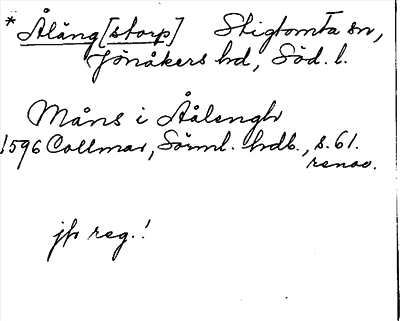 * Åläng[storp] Stigtomta sn,
Jönåkers hd, Söd. l.
Måns i Åålengh
1596 Collmar, Sörml. hdl., s. 61.
renov.
jfr reg.!